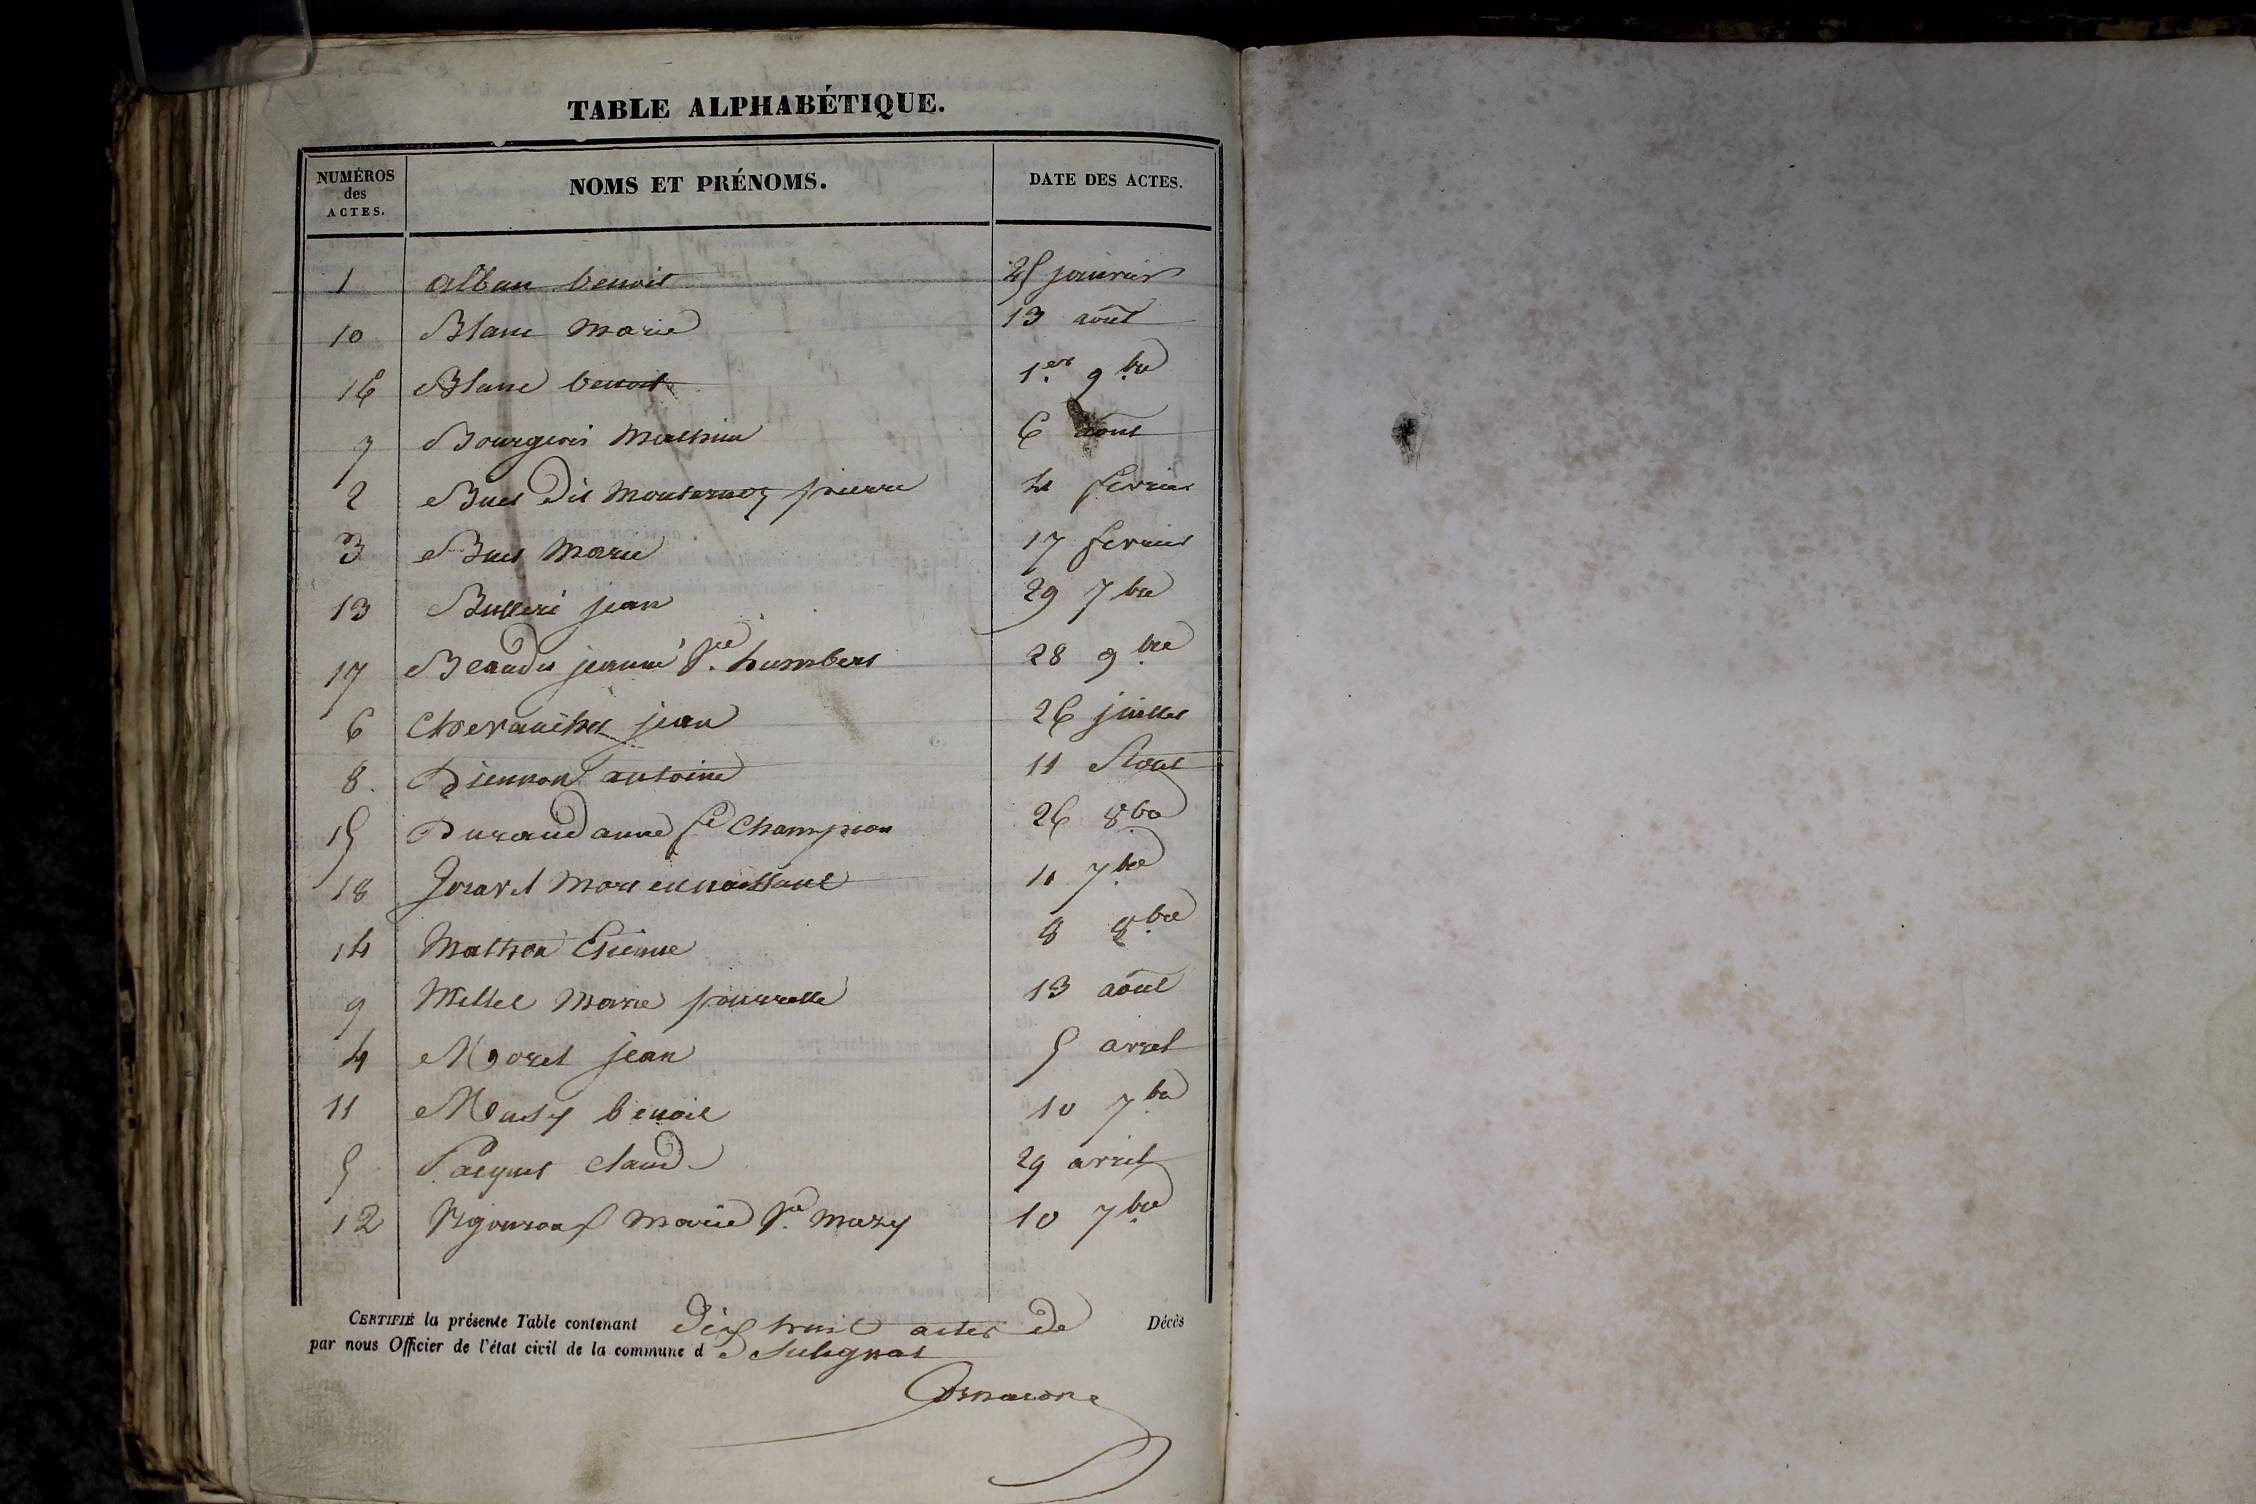 TABLE ALPHABÉTIQUE.
NUMÉROS des ACTES. NOMS ET PRÉNOMS. DATE DES ACTES.
1 alban benoit 25 janvier
10 Blanc Marie 13 août
16 Blanc benoit 1er 9bre
7 Bourgeois Mathieu 6 août
2 Buet dit Monternoz pierre 4 fevrier
3 Buet Marie 17 fevrier
13 Bulleri jean 29 7bre
17 Beaudet jeanne fe humbert 28 9bre
6 Chevauchet jean 26 juillet
8. antoine 11 Aout
15 Durand anne fe Champion 26 8bre
18 Gravet Mort en naissant 11 7bre
14 Mathon Etienne 8 8bre
9 Millet Marie pourrette 13 août
4 Moret jean 5 avril
11 benoit 10 7bre
5 Pacquet claude 29 avril
12 Marie fe 10 7bre
CERTIFIÉ la présente Table contenant dix huit actes de Décès
par nous Officier de l'état civil de la commune de Sulignat